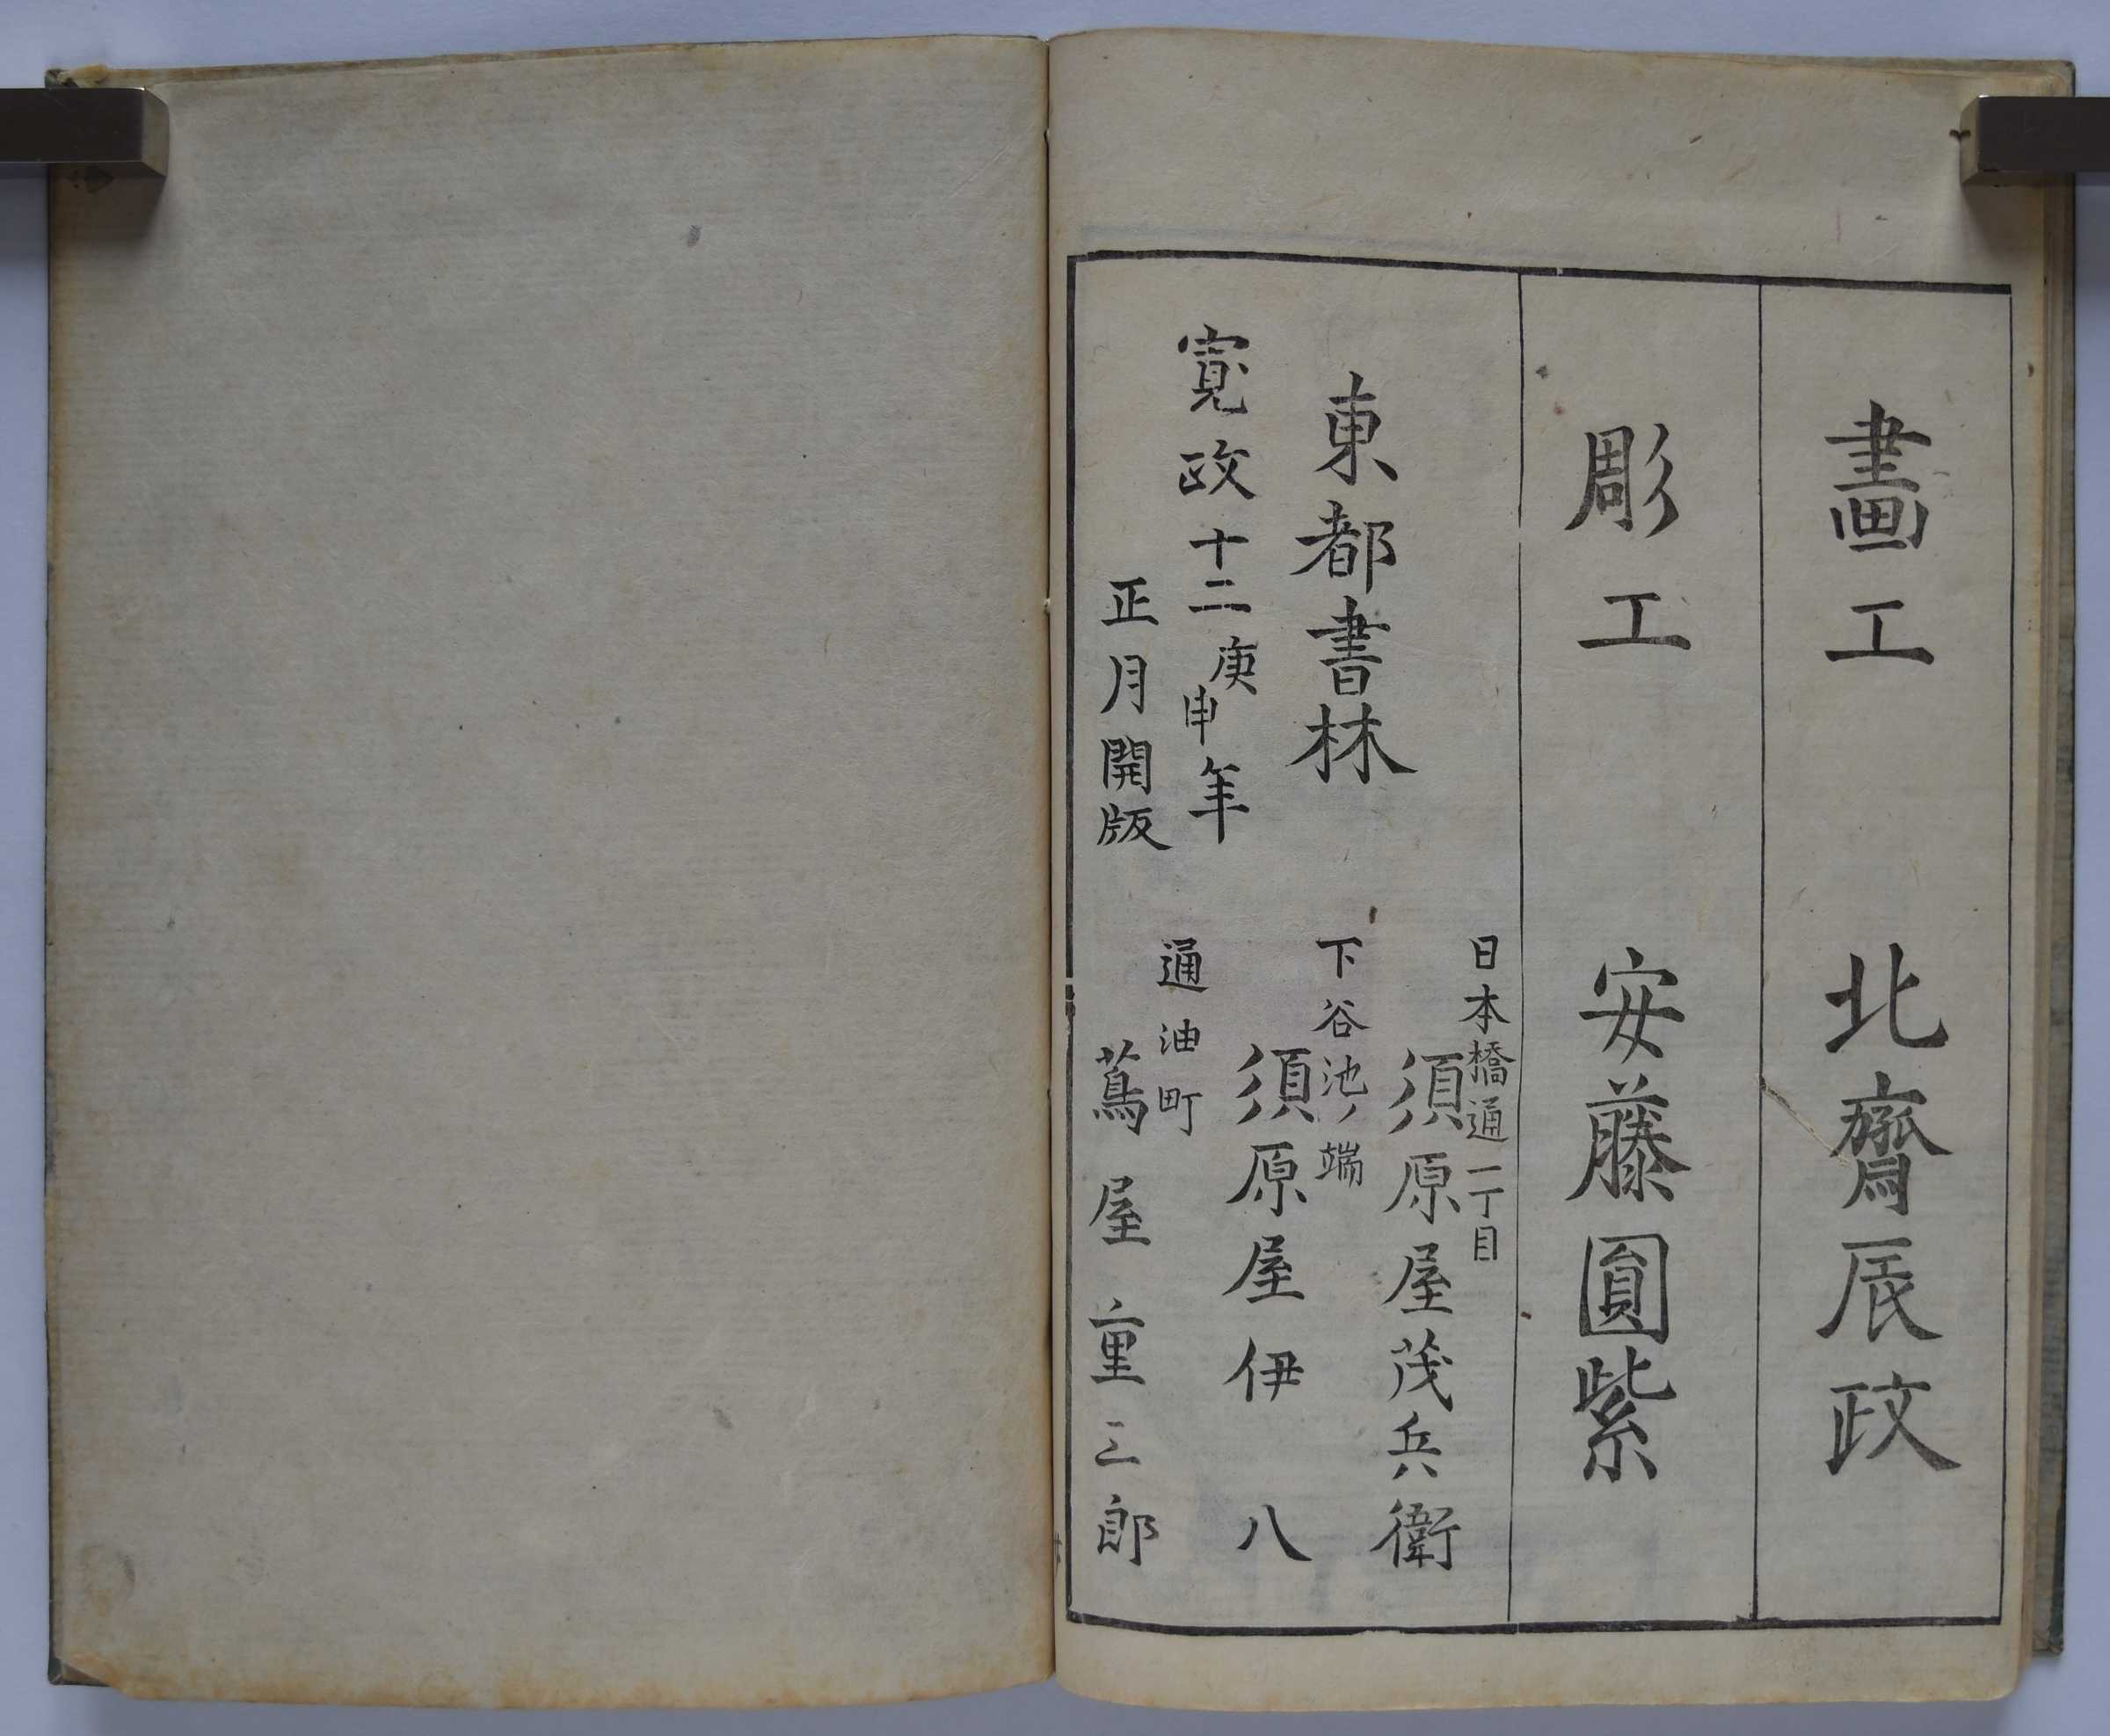 畫工 北齋辰政
彫工 安藤圓紫
東都書林
日本橋通一丁目
須原屋茂兵衛
下谷池ノ端
須原屋伊八
寛政十二庚申年
正月開版
通油町
蔦屋重三郎